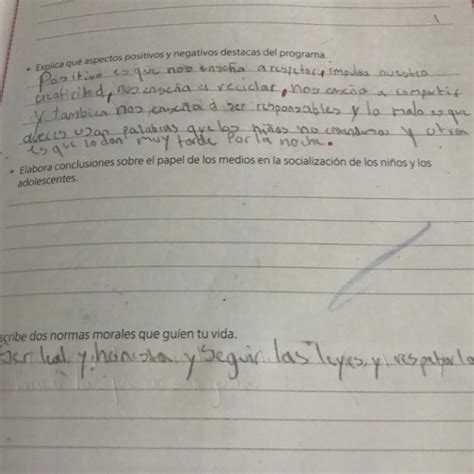 • Explica qué aspectos positivos y negativos destacas del programa.
Positivo es que nos enseña a respetar, impulsa nuestra
creatividad, nos enseña a reciclar, nos enseña a compartir
y tambien nos enseña a ser responsables y lo malo es que
aveces usan palabras que los niños no y otra
es que lo dan muy tarde por la noche.
• Elabora conclusiones sobre el papel de los medios en la socialización de los niños y los
adolescentes.
scribe dos normas morales que guíen tu vida.
Ser leal y honesta y seguir las leyes y respetar lo